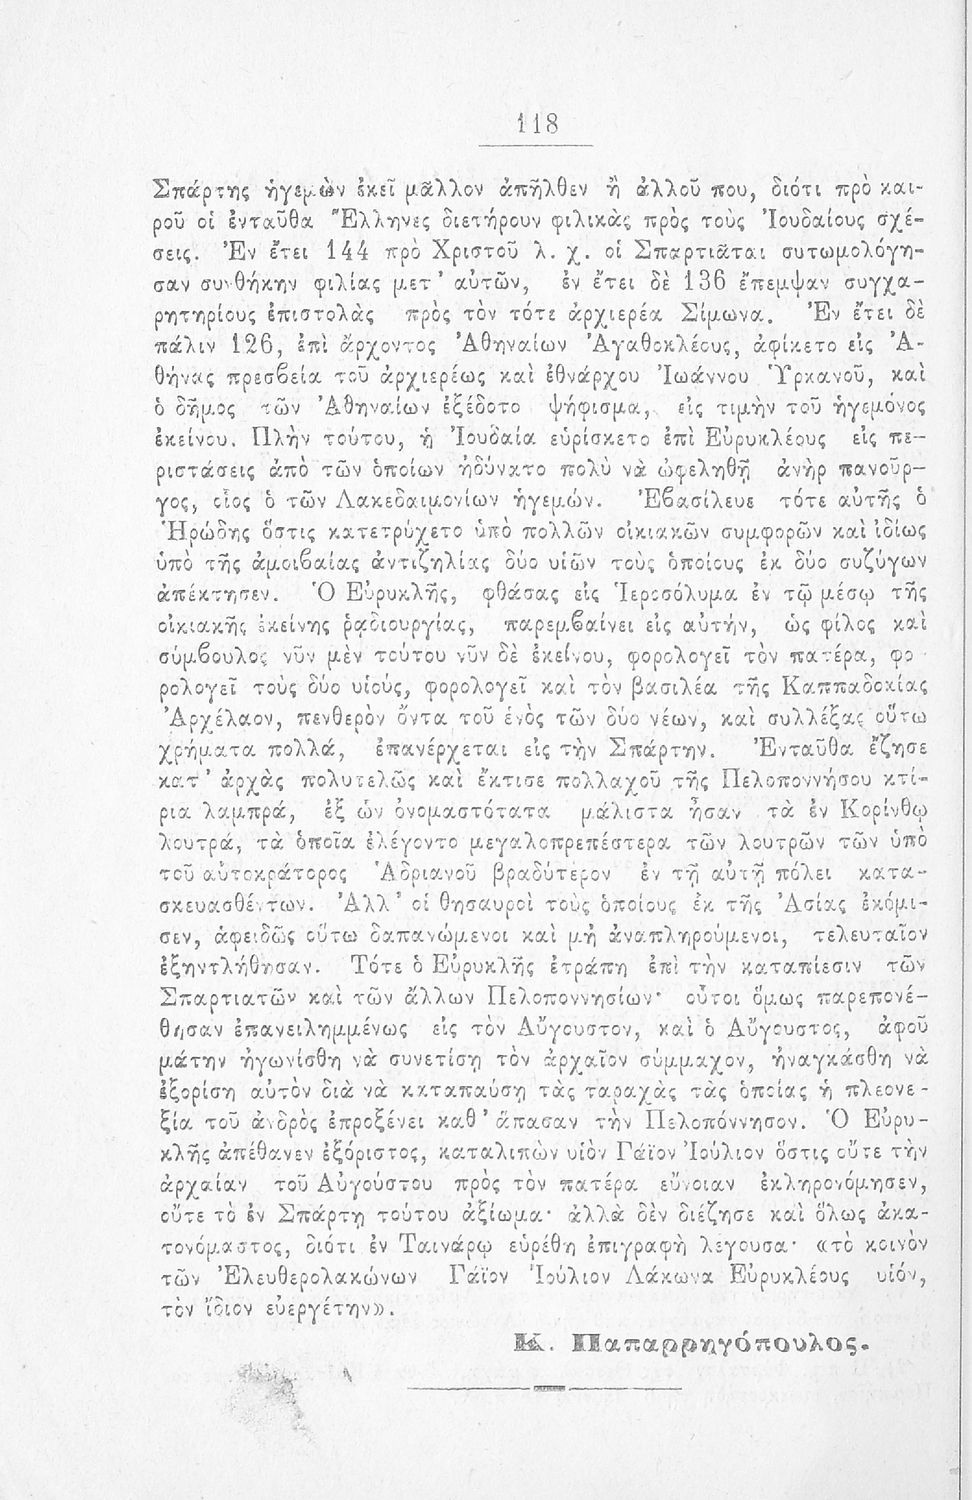 118
Σπάρτης ἡγεμὼν ἐκεῖ μᾶλλον ἀπῆλθεν ἢ ἀλλοῦ που, διότι πρὸ και-
ροῦ οἱ ἐνταῦθα Ἕλληνες διετήρουν φιλικὰς πρὸς τοὺς Ἰουδαίους σχέ-
σεις. Ἐν ἔτει 144 πρὸ Χριστοῦ λ. χ. οἱ Σπαρτιᾶται συτωμολόγη-
σαν συνθήκην φιλίας μετ' αὐτῶν, ἐν ἔτει δὲ 136 ἔπεμψαν συγχα-
ρητηρίους ἐπιστολὰς πρὸς τὸν τότε ἀρχιερέα Σίμωνα. Ἐν ἔτει δὲ
πάλιν 126, ἐπὶ ἄρχοντος Ἀθηναίων Ἀγαθοκλέους, ἀφίκετο εἰς Ἀ-
θήνας πρεσβεία τοῦ ἀρχιερέως καὶ ἐθνάρχου Ἰωάννου Ὑρκανοῦ, καὶ
ὁ δῆμος τῶν Ἀθηναίων ἐξέδοτο ψήφισμα, εἰς τιμὴν τοῦ ἡγεμόνος
ἐκείνου. Πλὴν τούτου, ἡ Ἰουδαία εὑρίσκετο ἐπὶ Εὐρυκλέους εἰς πε-
ριστάσεις ἀπὸ τῶν ὁποίων ἠδύνατο πολὺ νὰ ὠφεληθῇ ἀνὴρ πανοῦρ-
γος, οἷος ὁ τῶν Λακεδαιμονίων ἡγεμών. Ἐβασίλευε τότε αὐτῆς ὁ
Ἡρώδης ὅστις κατετρύχετο ὑπὸ πολλῶν οἰκιακῶν συμφορῶν καὶ ἰδίως
ὑπὸ τῆς ἀμοιβαίας ἀντιζηλίας δύο υἱῶν τοὺς ὁποίους ἐκ δύο συζύγων
ἀπέκτησεν. Ὁ Εὐρυκλῆς, φθάσας εἰς Ἱεροσόλυμα ἐν τῷ μέσῳ τῆς
οἰκιακῆς ἐκείνης ῥᾳδιουργίας, παρεμβαίνει εἰς αὐτήν, ὡς φίλος καὶ
σύμβουλος νῦν μὲν τούτου νῦν δὲ ἐκείνου, φορολογεῖ τὸν πατέρα, φο-
ρολογεῖ τοὺς δύο υἱούς, φορολογεῖ καὶ τὸν βασιλέα τῆς Καππαδοκίας
Ἀρχέλαον, πενθερὸν ὄντα τοῦ ἑνὸς τῶν δύο νέων, καὶ συλλέξας οὕτω
χρήματα πολλά, ἐπανέρχεται εἰς τὴν Σπάρτην. Ἐνταῦθα ἔζησε
κατ' ἀρχὰς πολυτελῶς καὶ ἔκτισε πολλαχοῦ τῆς Πελοποννήσου κτί-
ρια λαμπρά, ἐξ ὧν ὀνομαστότατα μάλιστα ἦσαν τὰ ἐν Κορίνθῳ
λουτρά, τὰ ὁποῖα ἐλέγοντο μεγαλοπρεπέστερα τῶν λουτρῶν τῶν ὑπὸ
τοῦ αὐτοκράτορος Ἀδριανοῦ βραδύτερον ἐν τῇ αὐτῇ πόλει κατα-
σκευασθέντων. Ἀλλ' οἱ θησαυροὶ τοὺς ὁποίους ἐκ τῆς Ἀσίας ἐκόμι-
σεν, ἀφειδῶς οὕτω δαπανώμενοι καὶ μὴ ἀναπληρούμενοι, τελευταῖον
ἐξηντλήθησαν. Τότε ὁ Εὐρυκλῆς ἐτράπη ἐπὶ τὴν καταπίεσιν τῶν
Σπαρτιατῶν καὶ τῶν ἄλλων Πελοποννησίων· οὗτοι ὅμως παρεπονέ-
θησαν ἐπανειλημμένως εἰς τὸν Αὔγουστον, καὶ ὁ Αὔγουστος, ἀφοῦ
μάτην ἠγωνίσθη νὰ συνετίσῃ τὸν ἀρχαῖον σύμμαχον, ἠναγκάσθη νὰ
ἐξορίσῃ αὐτὸν διὰ νὰ καταπαύσῃ τὰς ταραχὰς τὰς ὁποίας ἡ πλεονε-
ξία τοῦ ἀνδρὸς ἐπροξένει καθ' ἅπασαν τὴν Πελοπόννησον. Ὁ Εὐρυ-
κλῆς ἀπέθανεν ἐξόριστος, καταλιπὼν υἱὸν Γάϊον Ἰούλιον ὅστις οὔτε τὴν
ἀρχαίαν τοῦ Αὐγούστου πρὸς τὸν πατέρα εὔνοιαν ἐκληρονόμησεν,
οὔτε τὸ ἐν Σπάρτῃ τούτου ἀξίωμα· ἀλλὰ δὲν διέζησε καὶ ὅλως ἀκα-
τονόμαστος, διότι ἐν Ταινάρῳ εὑρέθη ἐπιγραφὴ λέγουσα· «τὸ κοινὸν
τῶν Ἐλευθερολακώνων Γάϊον Ἰούλιον Λάκωνα Εὐρυκλέους υἱόν,
τὸν ἴδιον εὐεργέτην».
Κ. Παπαρρηγόπουλος.